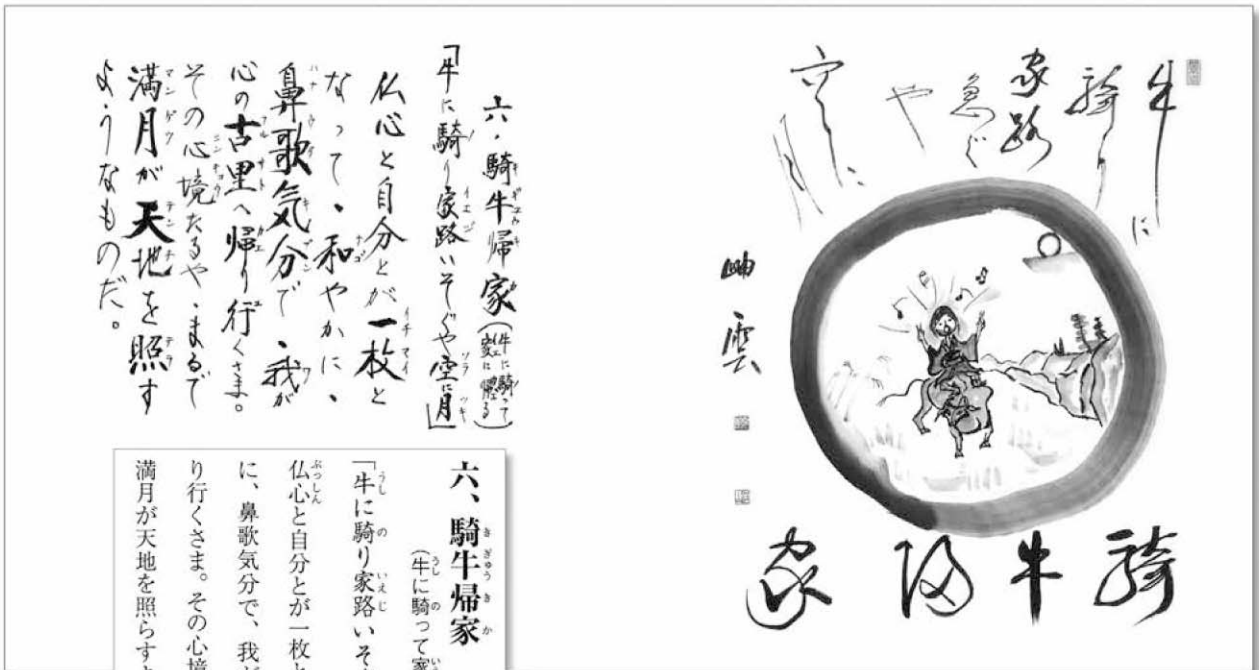 牛に
騎り
家路
急ぐ
や
空に
月
岫雲
騎牛帰家
六、騎牛帰家(牛に騎って家に帰る)
「牛に騎り家路いそぐや空に月」
仏心と自分とが一枚と
なって、和やかに、
鼻歌気分で、我が
心の古里へ帰り行くさま。
その心境たるや、まるで
満月が天地を照す
ようなものだ。
六、騎牛帰家
(牛に騎って家
「牛に騎り家路いそ
仏心と自分とが一枚と
に、鼻歌気分で、我が
り行くさま。その心境
満月が天地を照らすよ